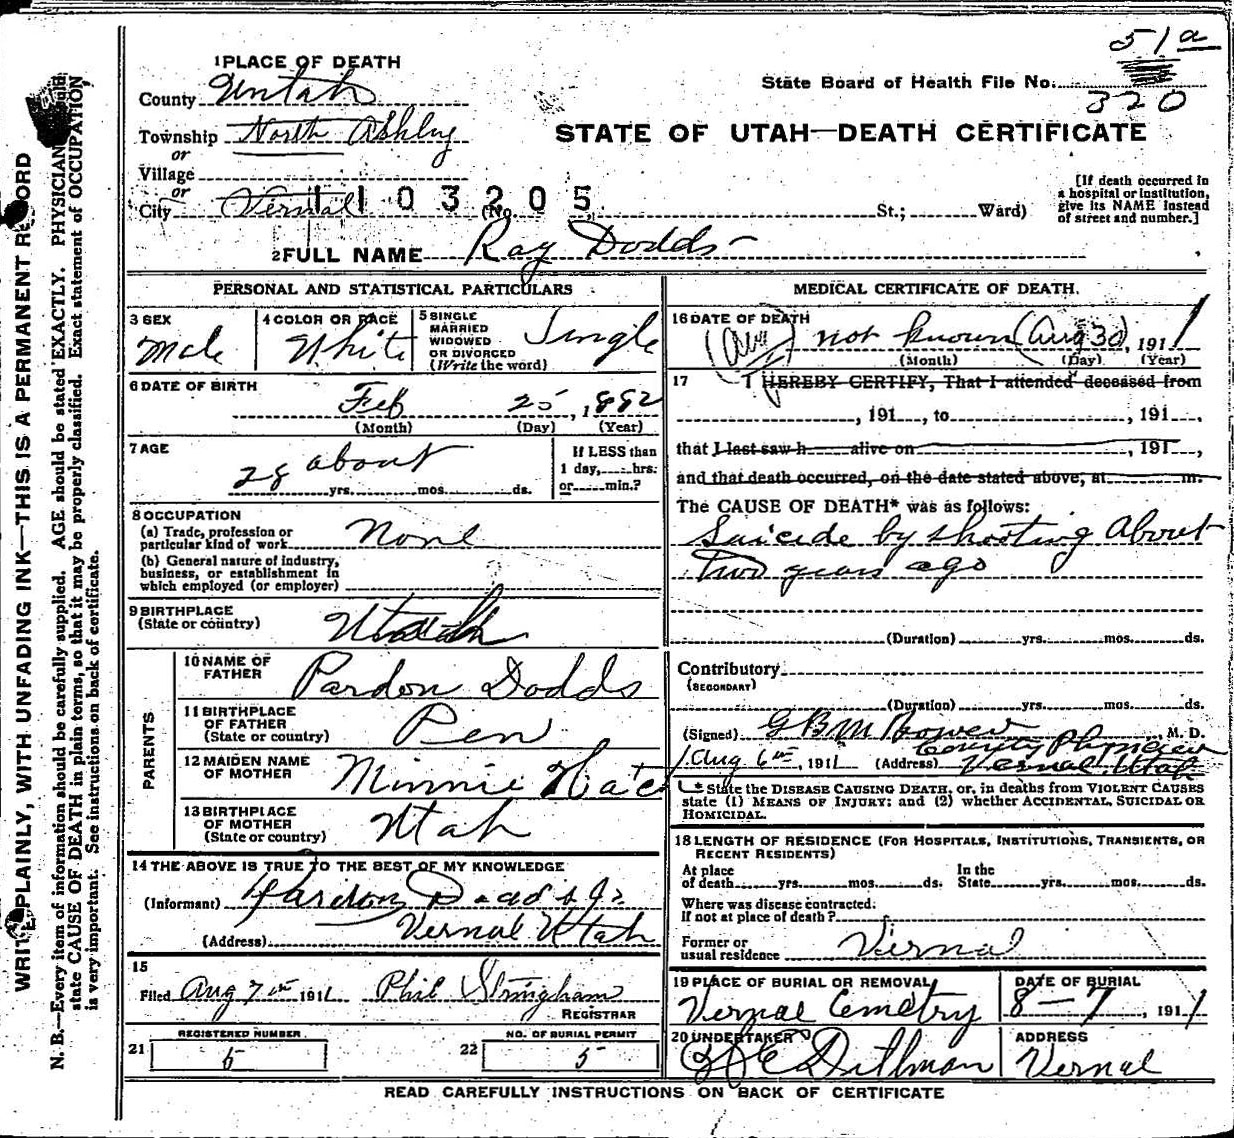 51a
1 PLACE OF DEATH
State Board of Health File No. 320
County Uintah
Township North Ashley
STATE OF UTAH—DEATH CERTIFICATE
or
Village
or
City Vernal (No. St.; Ward)
1103205
[If death occurred in
a hospital or institution,
give its NAME instead
of street and number.]
2 FULL NAME Ray Dodds
PERSONAL AND STATISTICAL PARTICULARS
3 SEX
Male
4 COLOR OR RACE
White
5 SINGLE
MARRIED
WIDOWED
OR DIVORCED
(Write the word)
Single
6 DATE OF BIRTH
Feb 25, 1882
(Month) (Day) (Year)
7 AGE
about
28 yrs. mos. ds.
If LESS than
1 day, hrs.
or min.?
8 OCCUPATION
(a) Trade, profession or
particular kind of work None
(b) General nature of industry,
business, or establishment in
which employed (or employer)
9 BIRTHPLACE
(State or country)
Utah
PARENTS
10 NAME OF
FATHER
Pardon Dodds
11 BIRTHPLACE
OF FATHER
(State or country)
Pen
12 MAIDEN NAME
OF MOTHER
Minnie
13 BIRTHPLACE
OF MOTHER
(State or country)
Utah
14 THE ABOVE IS TRUE TO THE BEST OF MY KNOWLEDGE
(Informant) Pardon Dodds Jr
(Address) Vernal Utah
15
Filed Aug 7th 1911 Phil Stringham
REGISTRAR
REGISTERED NUMBER
21 5
NO. OF BURIAL PERMIT
22 5
MEDICAL CERTIFICATE OF DEATH.
16 DATE OF DEATH
not known (Aug 30), 1911
(Month) (Day) (Year)
17 I HEREBY CERTIFY, That I attended deceased from
, 191 , to , 191 ,
that I last saw h alive on , 191 ,
and that death occurred, on the date stated above, at m.
The CAUSE OF DEATH* was as follows:
Suicide by shooting About
two years ago
(Duration) yrs. mos. ds.
Contributory
(SECONDARY)
(Duration) yrs. mos. ds.
(Signed) G B M Bower, M. D.
County Physician
Aug 6th, 1911 (Address) Vernal Utah
* State the DISEASE CAUSING DEATH, or, in deaths from VIOLENT CAUSES
state (1) MEANS OF INJURY; and (2) whether ACCIDENTAL, SUICIDAL OR
HOMICIDAL.
18 LENGTH OF RESIDENCE (FOR HOSPITALS, INSTITUTIONS, TRANSIENTS, OR
RECENT RESIDENTS)
At place
of death yrs. mos. ds.
In the
State yrs. mos. ds.
Where was disease contracted,
If not at place of death?
Former or
usual residence Vernal
19 PLACE OF BURIAL OR REMOVAL
Vernal Cemetry
DATE OF BURIAL
8-7, 1911
20 UNDERTAKER
Dillman
ADDRESS
Vernal
READ CAREFULLY INSTRUCTIONS ON BACK OF CERTIFICATE
WRITE PLAINLY, WITH UNFADING INK—THIS IS A PERMANENT RECORD
N. B.—Every item of information should be carefully supplied. AGE should be stated EXACTLY. PHYSICIANS should
state CAUSE OF DEATH in plain terms, so that it may be properly classified. Exact statement of OCCUPATION
is very important. See instructions on back of certificate.